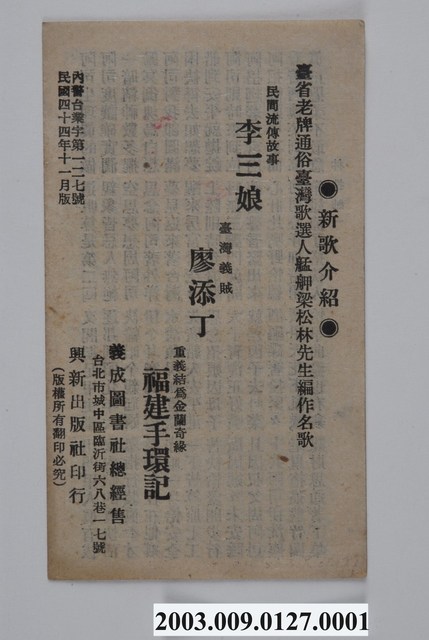 ●新歌介紹●
臺省老牌通俗臺灣歌選人艋舺梁松林先生編作名歌
民間流傳故事
李三娘
臺灣義賊
廖添丁
重義結為金蘭奇緣
福建手環記
義成圖書社總經售
台北市城中區臨沂街六八巷一七號
興新出版社印行
(版權所有翻印必究)
內警台業字第一二七號
民國四十四年十一月版
2003.009.0127.0001